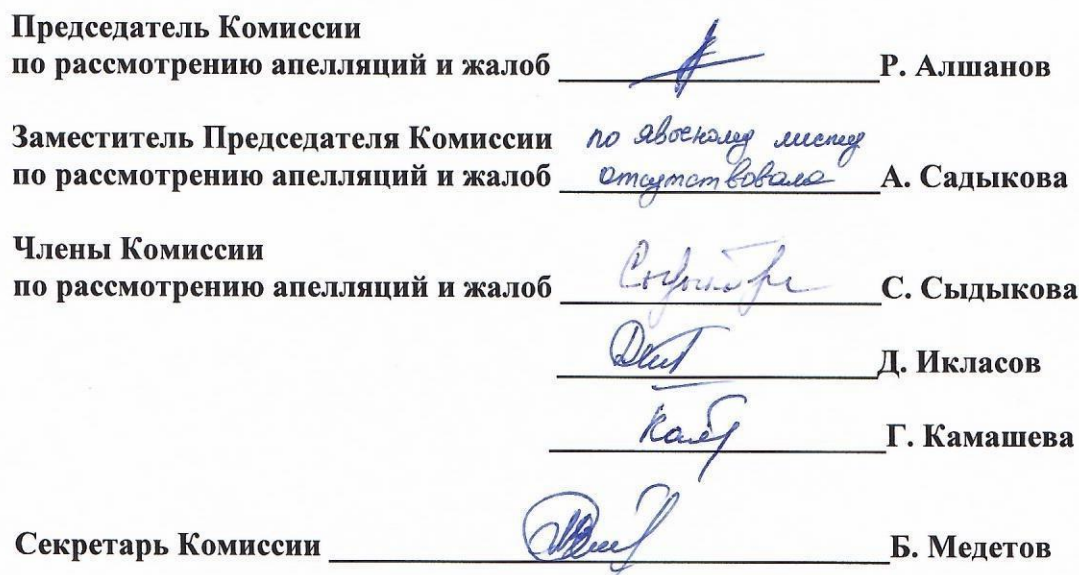 Председатель Комиссии
по рассмотрению апелляций и жалоб Р. Алшанов
Заместитель Председателя Комиссии по явочному листу
по рассмотрению апелляций и жалоб отсутствовала А. Садыкова
Члены Комиссии
по рассмотрению апелляций и жалоб С. Сыдыкова
Д. Икласов
Г. Камашева
Секретарь Комиссии Б. Медетов